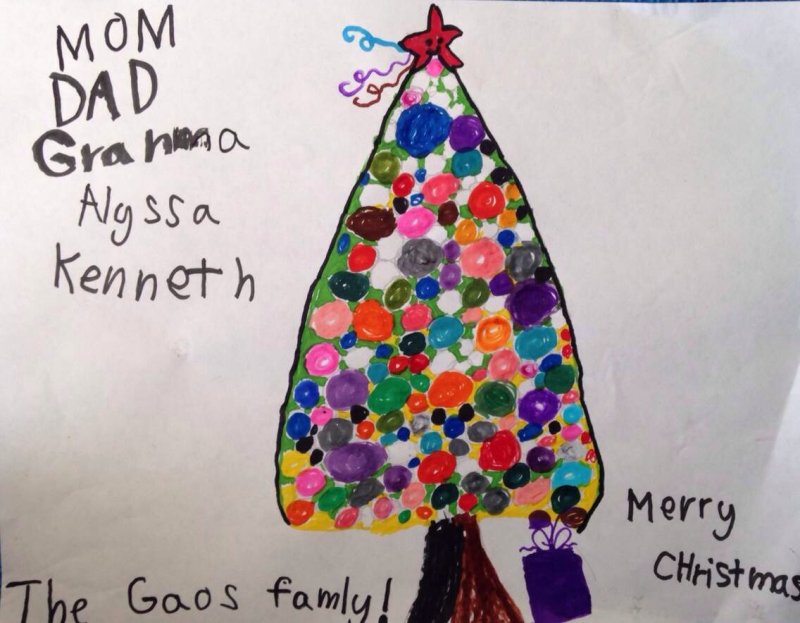 MOM
DAD
Granma
Alyssa
Kenneth
Merry
CHristmas
The Gaos famly!